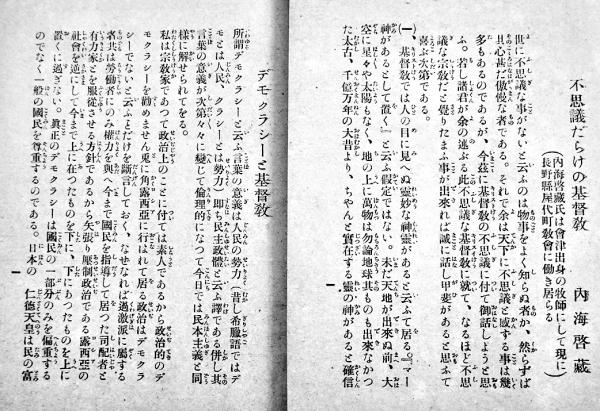 不思議だらけの基督教　内海啓藏
(内海啓藏氏は會津出身の牧師にして現に
長野縣屋代町敎會に働き居らる)
世に不思議な事がないと云ふのは物事をよく知らぬ者か、然らずば
且心甚だ傲慢な者である。それで余は天下に不思議と感ずる事は幾
多もあるのであるが、今茲に基督敎の不思議に付て御話しようと思
ふ。若し諸君が余の述ぶる此不思議な基督敎に就て、なるほど不思
議な宗敎だと覺りたまふ事が出來れば誠に話し甲斐があると思ふて
喜ぶ次第である。
(一)、基督敎では人の目に見へぬ靈妙な神靈があると云ふて居る。『マー
神があるとして置く』と云ふ假定ではない。未だ天地が出來ぬ前、大
空に星々や太陽もなく、地の上に萬物は勿論地球其ものも出來なかつ
た太古、千億万年の大昔より、ちやんと實在する靈の神があると確信
デモクラシーと基督敎
所謂デモクラシーと云ふ言葉の意義は人民の勢力(昔し希臘語ではデ
モとは人民、クラシーとは勢力)即ち民主政體と云ふ譯である併し其
言葉の意義が次第々々に變じて倫理的になつて今日では民本主義と同
樣に解せられてをる。
私は宗敎家であつて政治上のことに付ては素人であるから政治的のデ
モクラシーを勸めません兎に角露西亞に行はれて居る政治はデモクラ
シーでないと云ふことだけを斷言しておく、なぜなれば過激派に屬する
者共は勞働者にのみ權力を與へ今まで國民を指導して居つた司配者と
有力家とを服從させる方針であるから矢張り厭制政治である露西亞の
社會を逆にして今まで上に在つたものを下に、下にあつたものを上に
置くに過ぎない。眞正のデモクラシーは國民の一部分のみを偏重する
のでなく一般の國民を尊重するのである。日本の 仁德天皇は民の富